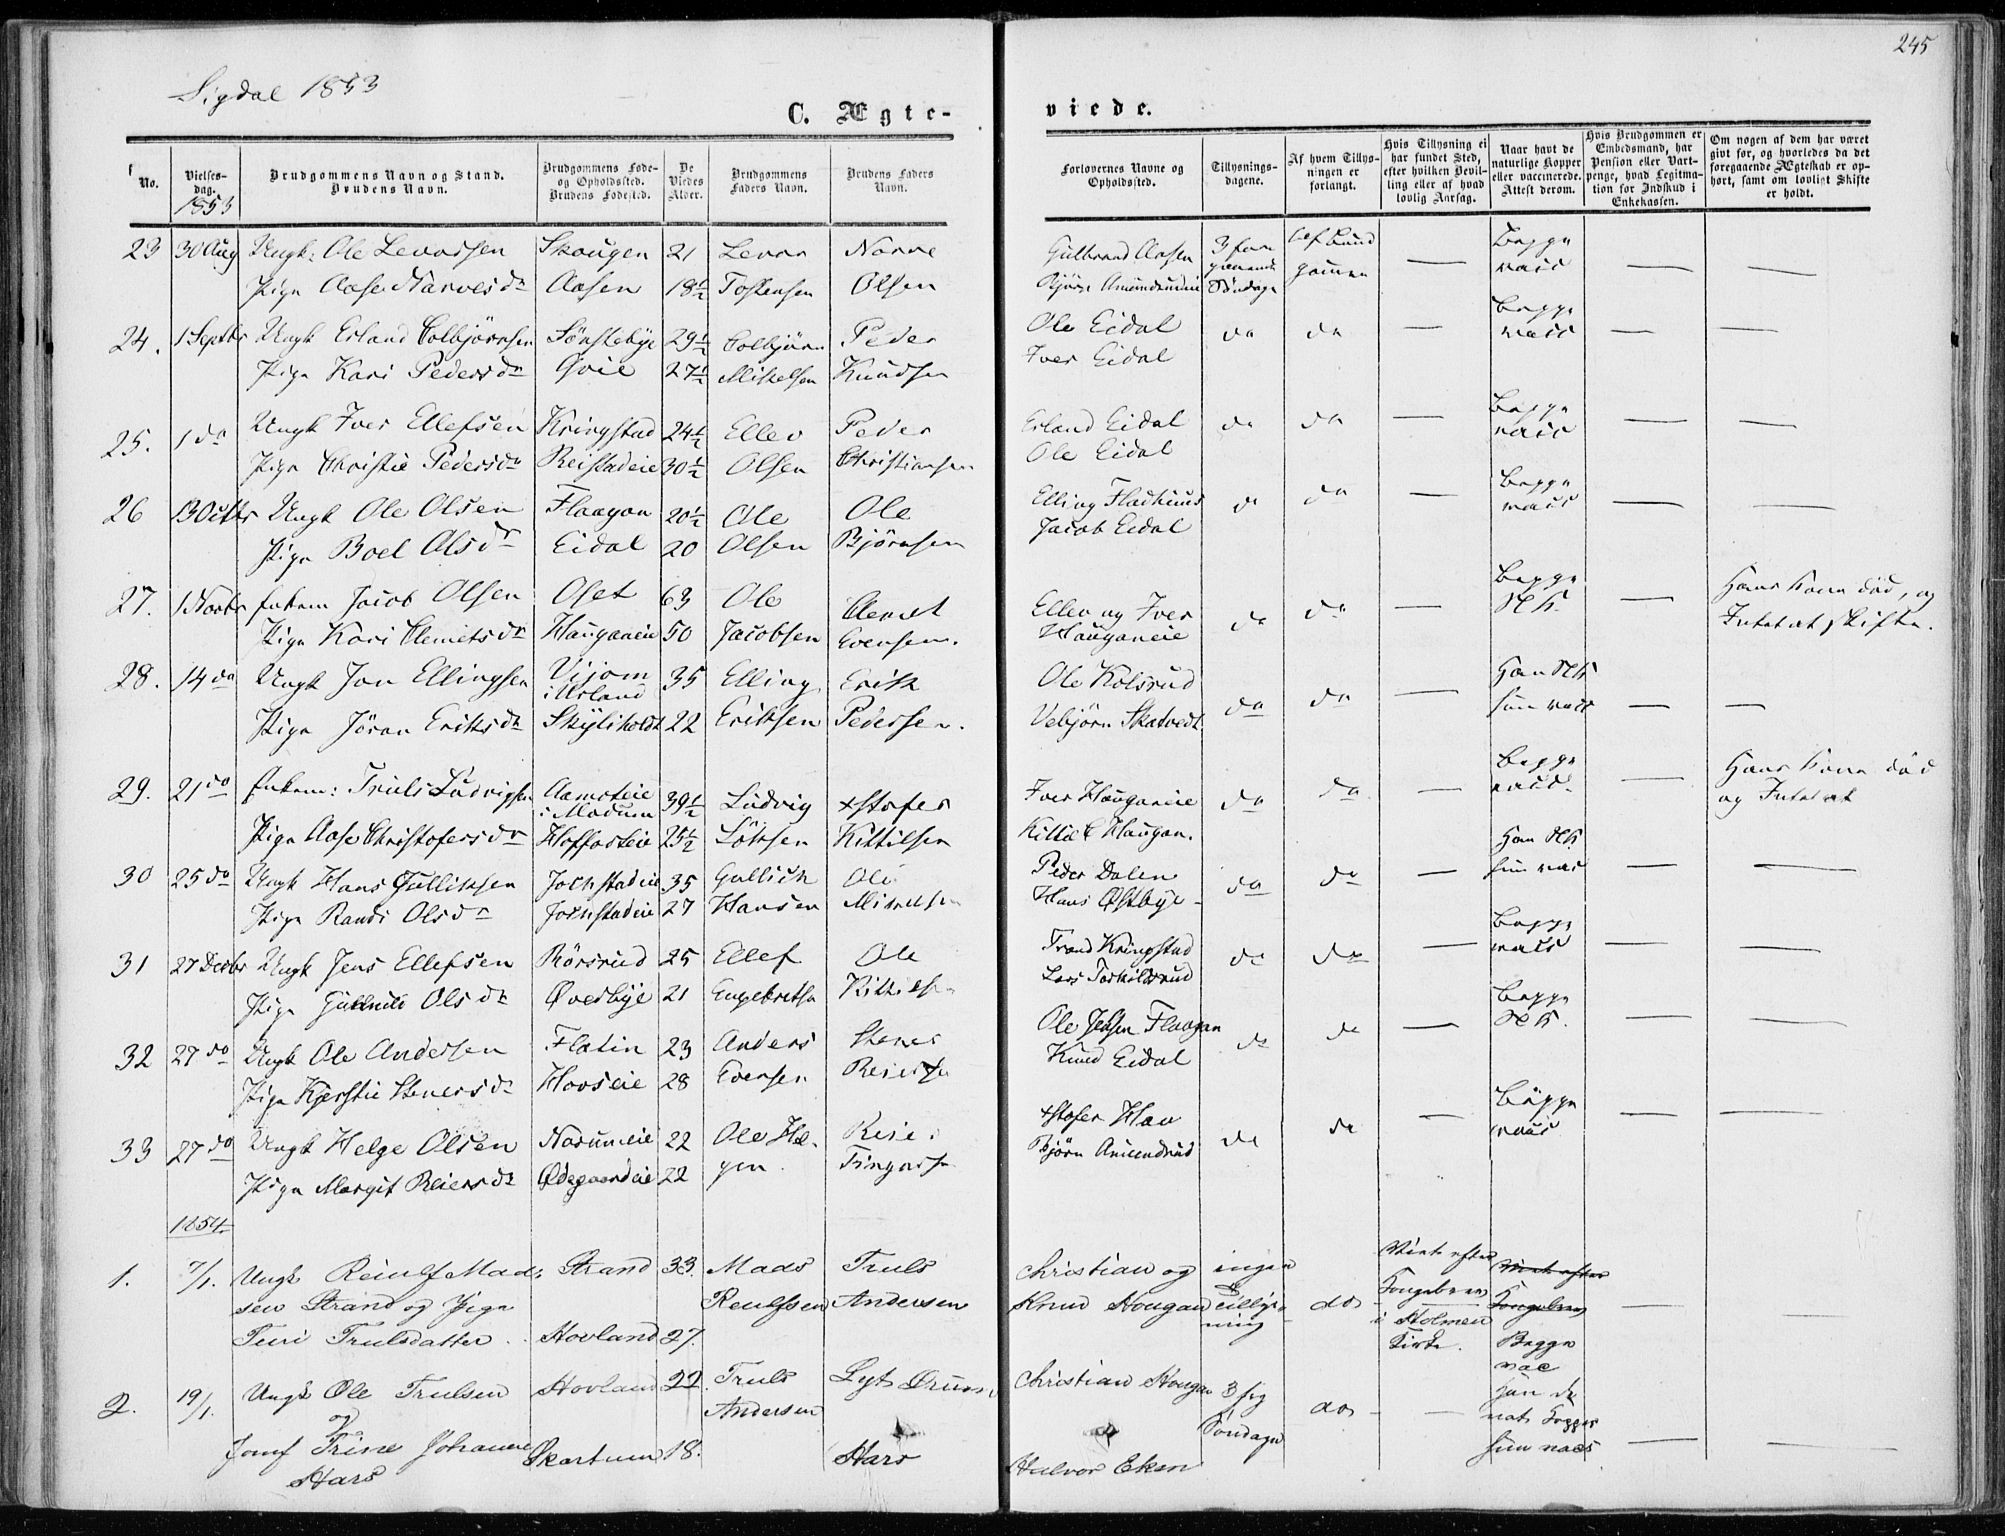 245
Sigdal 1853
C. Ægte-
viede.
No.
Vielses-
dag.
1853
Brudgommens Navn og Stand.
Brudens Navn.
Brudgommens Føde-
og Opholdssted.
Brudens Fødested.
De
Viedes
Alder.
Brudgommens
Faders Navn.
Brudens Faders
Navn.
Forlovernes Navne og
Opholdssted.
Tillysnings-
dagene.
Af hvem Tillys-
ningen er
forlangt.
Hvis Tillysning ei
har fundet Sted,
efter hvilken Bevil-
ling eller af hvad
lovlig Aarsag.
Naar havt de
naturlige Kopper
eller vaccinerede.
Attest derom.
Hvis Brudgommen er
Embedsmand, har
Pension eller Vart-
penge, hvad Legitima-
tion for Indskud i
Enkekassen.
Om nogen af dem har været
givt før, og hvorledes da det
foregaaende Ægteskab er op-
hørt, samt om lovligt Skifte
er holdt.
23 30 Aug Ungk: Ole Levorsen Skougen 21 Levor Narve Gulbrand Aasen 3 fore Begge
Pige Aase Narvesdr Aasen 18½ Tostensen Olsen Bjørn Amundrudeie Søndage vacc
24. 1 Septbr Ungk Erland Colbjørnsen Sønstebye 29½ Colbjørn Peder Ole Eidal do do Begge vacc
Pige Kari Pedersdr Qvie 27½ Mikelsen Knudsen Iver Eidal
25. 1 do Ungk Iver Ellefsen Kringstad 24½ Ellev Peder Erland Eidal do do Begge vacc
Pige Christie Pedersdr Reistadeie 30½ Olsen Christiansen Ole Eidal
26 13 Octbr Ungk Ole Olsen Flaagan 20½ Ole Ole Elling Fladhuus do do Begge vacc
Pige Boel Olsdr Eidal 20 Olsen Bjørnsen Jacob Eidal
27. 1 Novbr Enkem Jacob Olsen Olet 63 Ole Clemet Ellev og Iver do do Begge N K. Hans Kone død, og
Pige Kari Clemetsdr Hauganeie 50 Jacobsen Evensen. Hauganeie Intet at skifte.
28. 14 do Ungk Jon Ellingsen Vijom i Urland 35 Elling Erik Ole Kolsrud do do Han N K
Pige Jöran Eriksdr Skÿlikoldt 22 Eriksen Pedersen. Vebjørn Skatvedt hun vacc
29. 21 do Enkem: Truls Ludvigsen Aamoteie i Modum 39½ Ludvig Xstofer Iver Hauganeie do do Begge vacc. Hans Kone død
Pige Aase Christofersdr Hoffarteie 25½ Kittilsen Kittil Haugan. og Intet at
30 25 do Ungk Hans Gulliksen 35 Gullich Ole Peder Dalen do do Han N K
Pige Randi Olsdr 27 Hansen Mikkelsen Hans Østbye hun vac
31 27 Decbr Ungk Jens Ellefsen Rörsrud 25 Ellef Ole Trond Kringstad do do Begge vacc
Pige Gunild Olsdr Øverbye 21 Engebretsen Kittilsen Lars Torkildsrud
32 27 do Ungk Ole Andersen Flatin 23 Anders Stener Ole Jensen Flaagan do do Begge N K.
Pige Kjerstie Stenersdr Hovseie 28 Evensen Reiersen Knud Eidal
33 27 do Ungk Helge Olsen Narumeie 22 Ole Hel- Reier Xstofer Hov do do Begge vacc
Pige Margit Reiersdr Ødegaardeie 22 gen. Bjørn Amundrud
1854
1. 7/1. Ungk Reinulf Mad- Strand 33. Mads Truls Christian og ingen Viet efter
sen Strand og Pige Reulfsen Andersen Knud Hougan Tillys- do Kongebrev
Turi Trulsdatter. Hovland 27. ning i Holmen Begge
Kirke. vac
2. 19/1. Ungk Ole Trulsen Hovland 22 Truls Christian Hougan 3 Han de
og Andersen do nat Kopper
Jomf Trine Johanne Skartum 18. Hars Halvor Eken Søndage hun vacc
Hars